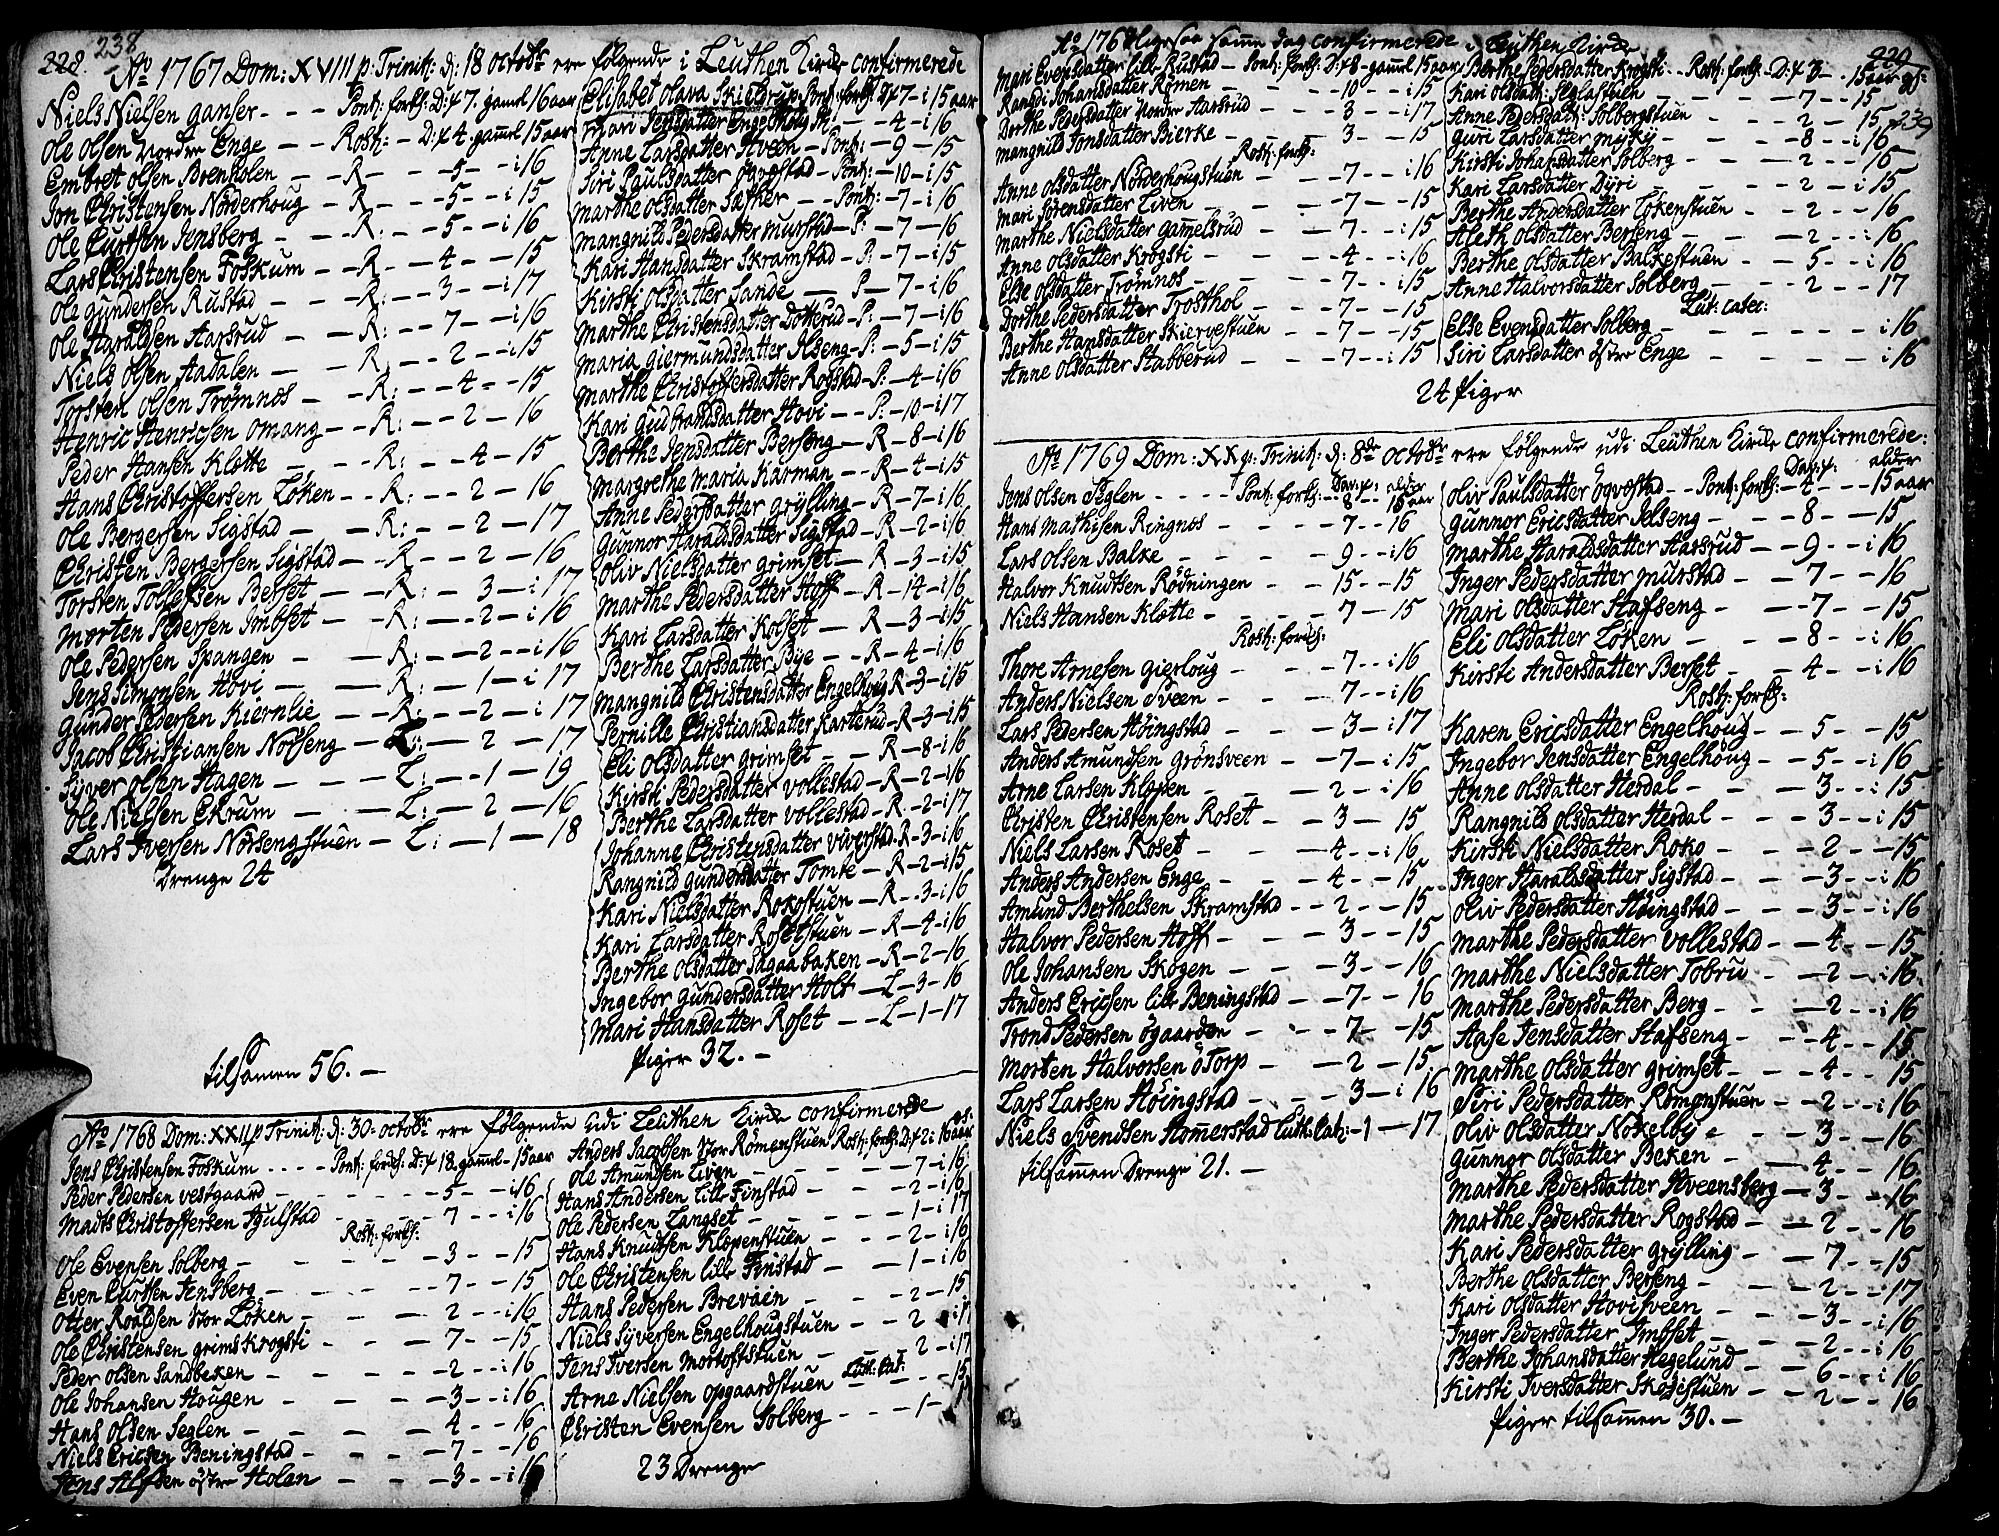 228. 238
Ao 1767 Dom: XVIII p: Trinit: d: 18 octobr ere følgende i Leuthen Kircke confirmerede
Niels Nielsen ganser - - - Pont: forkl: D: 4 7. gaml 16 aar
Ole Olsen Nordre Enge - - Rosh: - D: 4 4. gaml 15 aar
Embret Olsen Brenholen - R - - - 5 - - i 16
Jon Christensen Nörderhoug - R - - - 5 - - i 15
Ole Curtsen Jensberg - - R: - - 5 - - i 16
Lars Christensen Foskum - - R - - 4 - - - 15
Ole Gundersen Rustad - - R: - - 3 - - i 17
Ole Haraldsen Aarsrud - - R: - - 7 - - i 16
Niels Olsen Aadalen - - R: - - 2 - - i 15
Torsten Olsen Trömnos - - R: - - 4 - - 15
Henric Henricsen Omang - - R: - - 2 - 16
Peder Hansen Klötte - - R: - - 4 - 15
Hans Christoffersen Löken - - R: - - 2 - 16
Ole Bergersen Sigstad - - R: - - 2 - 17
Christen Bergersen Sigstad - - R - - 2 - 16
Torsten Tollefsen Berset - - R: - - 3 - i 17
Morten Pedersen Imbset - - R: - - 2 - i 16
Ole Pedersen Spangen - - R: - - 2 - - i 16
Jens Simonsen Hovi - - R: - - 1 - i 17
Gunder Pedersen Kiernlie - - R: - - 2 - i 17
Jacob Christiansen Norseng - L: - 2 - 17
Syver Olsen Hagen - - L: - - 1 - 19
Ole Nielsen Ekrum - - L: - 2 - 16
Lars Iversen Norsengstuen - L: - 1 - 18
Drenge 24
tilsamen 56. -
Elisabet Olava Skieldrup Pont: forkl: D: 4 7 - i 15 aar
Mari Jensdatter Engelhoug - 4 - i 16
Anne Larsdatter Hveen - Pont: - 9 - 15
Siri Paulsdatter Ögvestad - Pont: - 10 - i 15
Marthe Olsdatter Sæther - Pont: - 7 - i 16
Mangnild Pedersdatter Murstad - P: - 7 - 16
Kari Hansdatter Skramstad - P: - 7 - i 15
Kirsti Olsdatter Sande - P - 7 - i 16
Marthe Christensdatter Dötterud - P: - 7 - i 16
Maria Giermundsdatter Ilseng - P: - 5 - i 15
Marthe Christoffersdatter Rogstad - P: - 4 - i 16
Kari Gudbrandsdatter Hovi - - P: - 10 - i 17
Berthe Jensdatter Berseng - R - 8 - i 16
Margrethe Maria Karman - - R - 4 - i 15
Anne Pedersdatter Grylling - R - 7 - i 16
Gunnor Haraldsdatter Sigstad - R - 2 - i 16
Oliv Nielsdatter Grimset - R - 3 - i 15
Marthe Pedersdatter Hoff - R - 14 - i 16
Kari Larsdatter Kolset - R - 3 - i 15
Berthe Larsdatter Bye - - R - 4 - i 16
Mangnild Christensdatter Engelhoug R - 3 - i 16
Pernille Christiansdatter Karterud - R - 3 - i 15
Eli Olsdatter Grimset - - R - 8 - i 16
Kirsti Pedersdatter Vollestad - R - 2 - i 16
Berthe Larsdatter Vollestad - R - 2 - i 17
Johanne Christensdatter Viverstad - R - 3 - i 16
Rangnild Gundersdatter Tomte - R - 2 - i 15
Kari Nielsdatter Rokostuen - R - - 3 - i 16
Kari Larsdatter Rosetstuen - R - 4 - i 16
Berthe Olsdatter Sagaabaken - R - 2 - 16
Ingebor Gundersdatter Holt - L - 3 - 16
Mari Hansdatter Roset - - L - 1 - 17
Piger 32. -
Ao 1768 Dom: XXII p Trinit: d: 30 octobr ere følgende udi Leuthen Kircke confirmerede
Jens Christensen Foskum - - - - Pont: forkl: D: 4 18. gaml - 15 aar
Peder Pedersen Vestgaard - - - - - 5 - - i 16
Madts Christoffersen Hiulstad - - - 7 - - i 16
Rosh: forkl:
Ole Evensen Solberg - - - - - 3 - - - 15
Even Curtsen Jensberg - - - - 7 - - - 15
Otter Roaldsen Stor Löken - - - 2 - - i 16
Ole Christensen Grimskrogsti - - - 7 - - 15
Peder Olsen Sandbeken - - - - 2 - - i 16
Ole Johansen Hougen - - - - 3 - - i 16
Hans Olsen Seglen - - - - 4 - - 16
Niels Ericsen Beningstad - - - - 7 - - 16
Hans Alfsen Östre Holan - - - 3 - - i 16
Anders Jacobsen Stor Römenstuen Rosh: forkl: D: 4 2 i 16 aar
Ole Amundsen Liven - - - - 7 - i 16
Hans Andersen Lille Finstad - - - 2 - i 16
Ole Pedersen Langset - - - - - 1 - i 17
Hans Knudsen Klopenstuen - - - 2 - i 16
Ole Christensen Lille Finstad - - 1 - i 16
Hans Pedersen Brevaen - - - - 2 - 15
Niels Syversen Engelhougstuen - - 2 - i 17
Jens Iversen Mortoftstuen - - - 2 - i 17
Luth: Cat:
Arne Nielsen Opgaardstuen - - - 15
Christen Evensen Solberg - - - 1 -
23 Drenge
229
239
Ao 1768 ligesaa samme dag confirmerede i Leuthen Kircke
Mari Evensdatter Lille Rustad - Pont: forkl: D: 4 8 - gaml 15 aar
Randi Johansdatter Römen - - - 10 - - i 15
Dorthe Pedersdatter Nordre Aarsrud - - 3 - - i 17
Mangnild Jonsdatter Bierke - - - 3 - - 15
Rosh: forkl:
Anne Olsdatter Nörderhougstuen - - 7 - - i 16
Mari Sörensdatter Liven - - - 7 - - 15
Marthe Nielsdatter Gammelsrud - - 7 - - i 15
Anne Olsdatter Krogsti - - - 4 - - i 16
Else Olsdatter Trömnos - - - 7 - - i 15
Dorthe Pedersdatter Trosthol - - - 7 - - 15
Berthe Hansdatter Skiervestuen - - 7 - - 15
Anne Olsdatter Stabberud - - - 7 - - i 15
Berthe Pedersdatter Krogsti - - Rosh: forkl: D: 4 3 - - 15 aar gl:
Kari Olsdatt: Seglastuen - - - 7 - - 15
Anne Pedersdatt: Solbergstuen - - 2 - - 15
Guri Larsdatter Myky - - - 8 - - i 16
Kirsti Johansdatter Solberg - - - 2 - - 15
Kari Larsdatter Dyri - - - 2 - - i 15
Berthe Andersdatter Lökenstuen - - 2 - - 16
Aleth Olsdatter Berseng - - - 2 - - i 16
Berthe Olsdatter Balkestuen - - 5 - - i 16
Anne Halvorsdatter Solberg - - - 2 - - 17
Lut: Catec:
Else Evensdatter Solberg - - - - - i 16
Siri Larsdatter Östre Enge - - - - i 16
24 Piger
Ao 1769 Dom: XX p: Trinit: d: 8de octobr ere følgende udi Leuthen Kircke confirmerede:
Jens Olsen Seglen - - - - Pont: forkl: 8 - - 15 aar
Hans Mathisen Ringnos - - - - 7 - - 16
Lars Olsen Balke - - - - 9 - - i 16
Halvor Knudtsen Rödningen - - 15 - - 15
Niels Hansen Klötte - - - - 7 - 15
Rosh: forkl:
Thore Arnesen Gierloug - - - - 7 - - i 16
Anders Nielsen Sveen - - - - 7 - - i 16
Lars Pedersen Höingstad - - - - 3 - - i 17
Anders Amundsen Grönsveen - - 7 - - i 15
Arne Larsen Klöpen - - - - 2 - - i 16
Christen Christensen Roset - - - 3 - - 15
Niels Larsen Roset - - - - 4 - - i 16
Anders Andersen Enge - - - - 4 - - 15
Amund Berthelsen Skramstad - - 2 - - - 15
Halvor Pedersen Hoff - - - - 3 - - 15
Ole Johansen Skogen - - - 3 - - - 16
Anders Ericsen Lille Beningstad - - 7 - - 16
Trond Pedersen Ögaarden - - - 7 - - 15
Morten Halvorsen Ötorp - - - 2 - - 15
Lars Larsen Höingstad - - - - 3 - - i 16
Niels Svendsen Hommerstad Luth: Cat: - 1 - 17
tilsamen Drenge 21. -
Oliv Paulsdatter Ögvestad - - Pont: forkl: - 4 - - - 15 aar
Gunnor Ericsdatter Ilseng - - - 8 - - 15
Marthe Haraldsdatter Aarsrud - - 9 - - i 16
Inger Pedersdatter Murstad - - - 7 - - 16
Mari Olsdatter Stafseng - - - 7 - - 15
Eli Olsdatter Löken - - - - 8 - - i 16
Kirsti Andersdatter Berset - - - 4 - - i 16
Rosh: forkl:
Karen Ericsdatter Engelhoug - - 5 - - 15
Ingebor Jensdatter Engelhoug - - 5 - - i 16
Anne Olsdatter Herdal - - - 3 - - i 15
Rangnild Olsdatter Herdal - - - 3 - - i 15
Kirsti Nielsdatter Roko - - - 2 - - - 15
Inger Haraldsdatter Sigstad - - - 3 - - i 16
Oliv Pedersdatter Höingstad - - - 3 - - i 16
Marthe Pedersdatter Vollestad - - 4 - - 15
Marthe Nielsdatter Tobru - - - 2 - - i 16
Marthe Pedersdatter Berg - - - 2 - - i 16
Aase Jensdatter Stafseng - - - 4 - - 15
Marthe Olsdatter Grimset - - - 4 - - 15
Siri Pedersdatter Römenstuen - - 2 - - i 16
Oliv Olsdatter Nokelby - - - 3 - - 16
Gunnor Olsdatter Beken - - - 4 - - 16
Marthe Pedersdatter Hveensberg - 3 - - 16
Marthe Pedersdatter Rogstad - - 2 - - 16
Kari Pedersdatter Grylling - - - 7 - - 15
Berthe Olsdatter Berseng - - - 2 - - - 17
Kari Olsdatter Hovisveen - - - 3 - - i 16
Inger Pedersdatter Imbset - - - 2 - - i 16
Berthe Johansdatter Hegelund - - 6 - - i 16
Kirsti Iversdatter Skogistuen - - 2 - - 16
Piger tilsamen 30. -